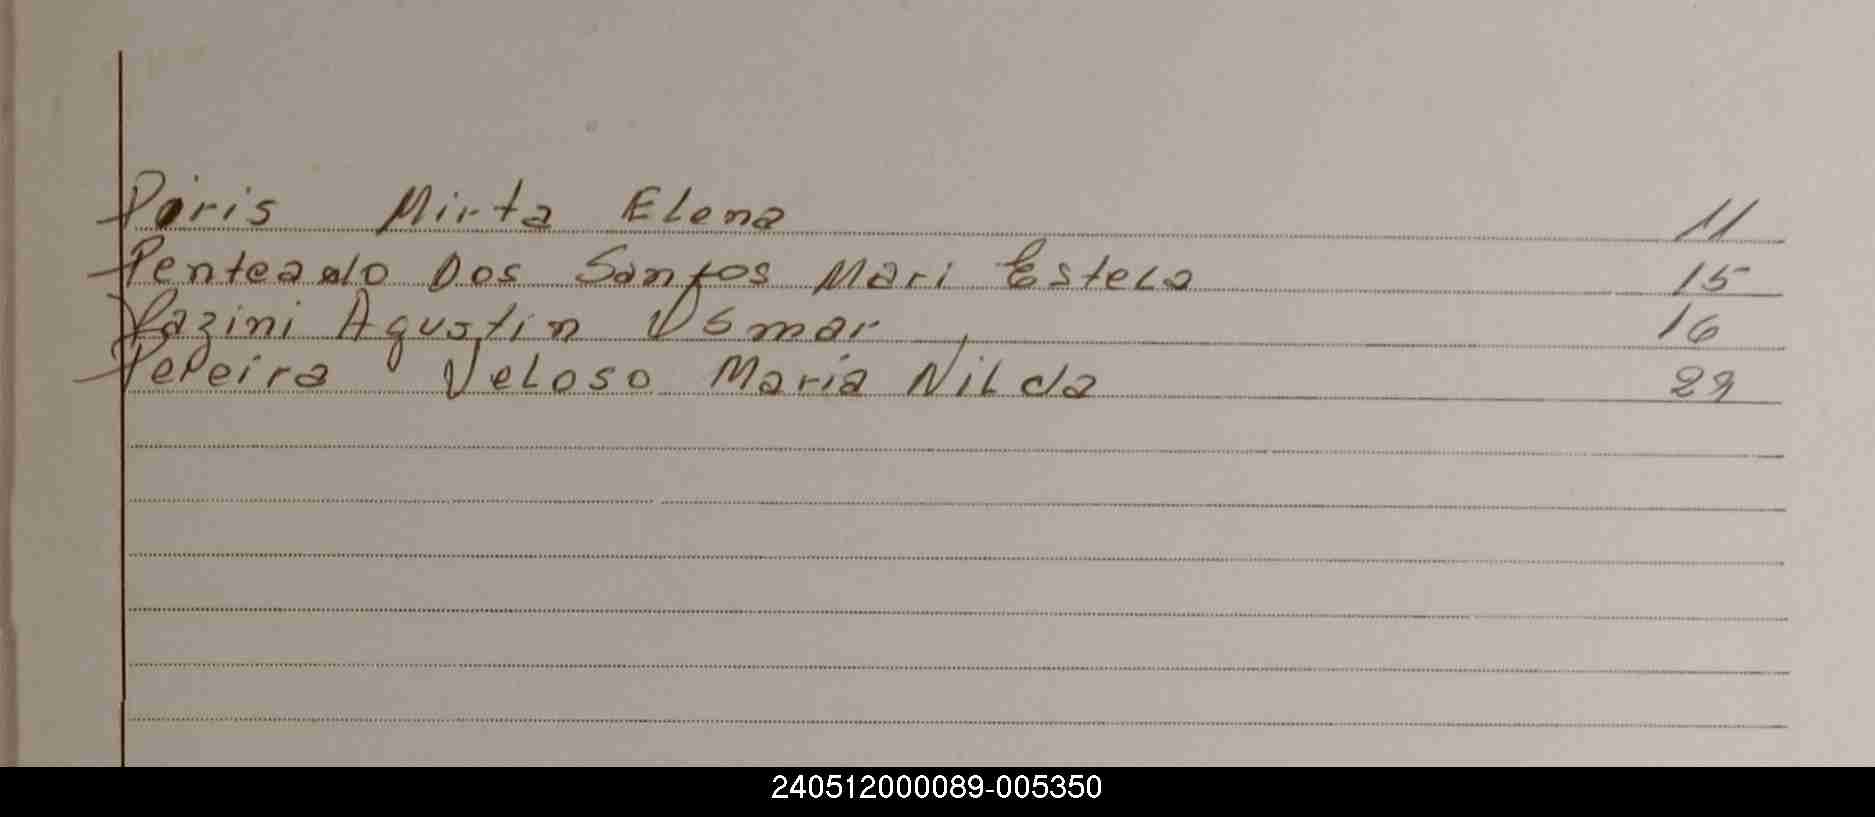 Paris Mirta Elena 11
Penteado Dos Santos Mari Estela 15
Pazini Agustin Osmar 16
Pereira Veloso Maria Nilda
240512000089-005350